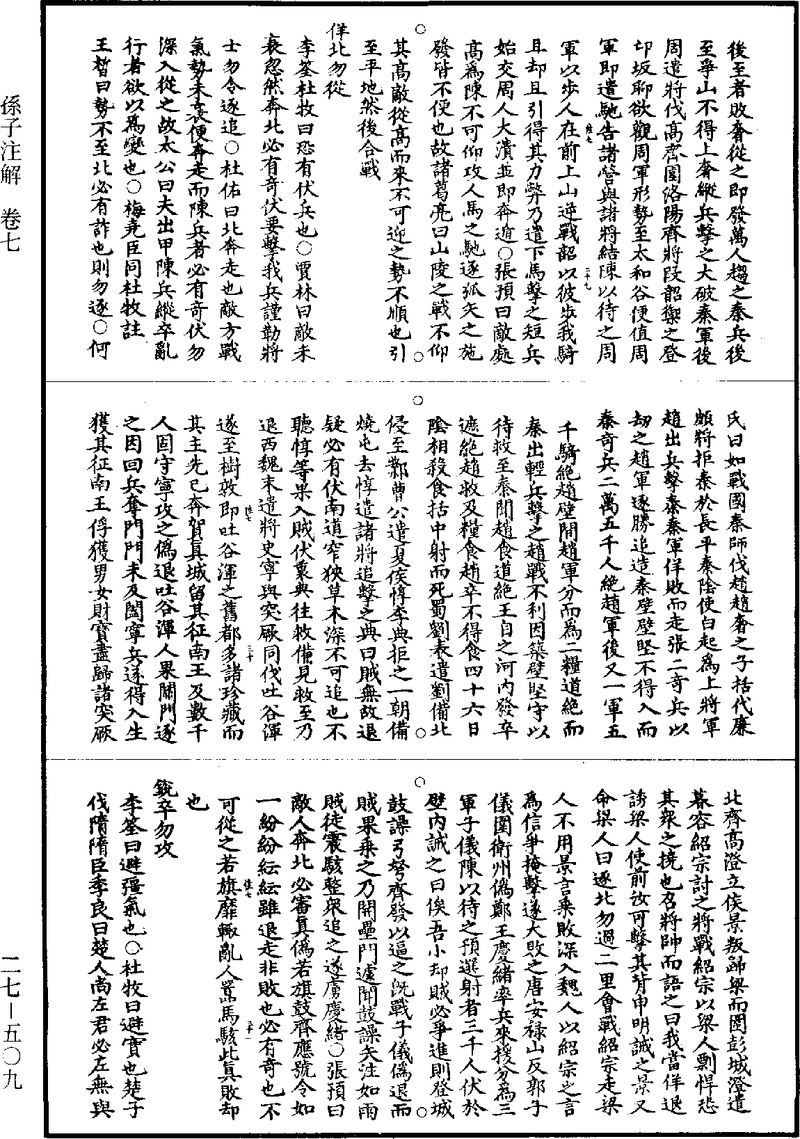 孫子注解　卷七
二七—五〇九
後至者敗奢從之即發萬人趨之秦兵後
至爭山不得上奢縱兵擊之大破秦軍後
周遣將伐高齊圍洛陽齊將段韶禦之登
邙坂聊欲觀周軍形勢至太和谷便值周
軍即遣馳告諸營與諸將結陳以待之周
軍以步人在前上山逆戰韶以彼步我騎
且却且引得其力弊乃遣下馬擊之短兵
始交周人大潰並即奔遁○張預曰敵處
高爲陳不可仰攻人馬之馳逐弧矢之施
發皆不便也故諸葛亮曰山陵之戰不仰
其高敵從高而來不可迎之勢不順也引
至平地然後合戰
佯北勿從
李筌杜牧曰恐有伏兵也○賈林曰敵未
衰忽然奔北必有奇伏要擊我兵謹勒將
士勿令逐追○杜佑曰北奔走也敵方戰
氣勢未衰便奔走而陳兵者必有奇伏勿
深入從之故太公曰夫出甲陳兵縱卒亂
行者欲以爲變也○梅堯臣同杜牧註
王晳曰勢不至北必有詐也則勿逐○何
氏曰如戰國秦師伐趙趙奢之子括代廉
頗將拒秦於長平秦陰使白起爲上將軍
趙出兵擊秦秦軍佯敗而走張二奇兵以
劫之趙軍逐勝追造秦壁壁堅不得入而
秦奇兵二萬五千人絶趙軍後又一軍五
千騎絶趙壁間趙軍分而爲二糧道絶而
秦出輕兵擊之趙戰不利因築壁堅守以
待救至秦聞趙食道絶王自之河内發卒
遮絶趙救及糧食趙卒不得食四十六日
陰相殺食括中射而死蜀劉表遣劉備北
侵至鄴曹公遣夏侯惇李典拒之一朝備
燒屯去惇遣諸將追擊之典曰賊無故退
疑必有伏南道窄狹草木深不可追也不
聽惇等果入賊伏裏典往救備見救至乃
退西魏末遣將史寧與突厥同伐吐谷渾
遂至樹敦即吐谷渾之舊都多諸珍藏而
其主先已奔賀真城留其征南王及數千
人固守寧攻之偽退吐谷渾人果開門逐
之因回兵奪門門未及闔寧兵遂得入生
獲其征南王俘獲男女財寶盡歸諸突厥
北齊高澄立侯景叛歸梁而圍彭城澄遣
慕容紹宗討之將戰紹宗以梁人剽悍恐
其衆之撓也召將帥而語之曰我當佯退
誘梁人使前汝可擊其背申明誡之景又
命梁人曰逐北勿過二里會戰紹宗走梁
人不用景言乘敗深入魏人以紹宗之言
爲信爭掩擊遂大敗之唐安禄山反郭子
儀圍衛州偽鄭王慶緒率兵來援分爲三
軍子儀陳以待之預選射者三千人伏於
壁内誡之曰俟吾小却賊必爭進則登城
鼓譟弓弩齊發以逼之旣戰子儀偽退而
賊果乘之乃開壘門遽聞鼓譟矢注如雨
賊徒震駭整衆追之遂虜慶緒○張預曰
敵人奔北必審真偽若旗鼓齊應號令如
一紛紛紜紜雖退走非敗也必有奇也不
可從之若旗靡轍亂人嚚馬駭此真敗却
也
銳卒勿攻
李筌曰避彊氣也○杜牧曰避實也楚子
伐隋隋臣季良曰楚人尚左君必左無與